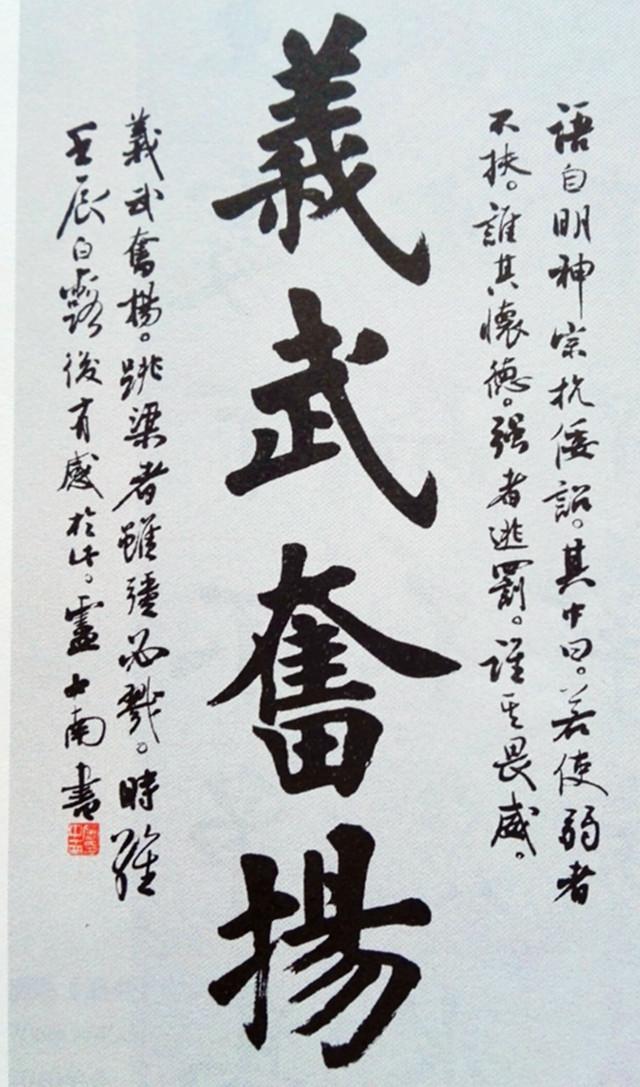 語自明神宗抗倭詔。其中曰。若使弱者
不扶。誰其懷德。强者逃罰。誰其畏威。
義武奮揚
義武奮揚。跳梁者雖强必戮。時維
壬辰白露後有感於此。盧中南書